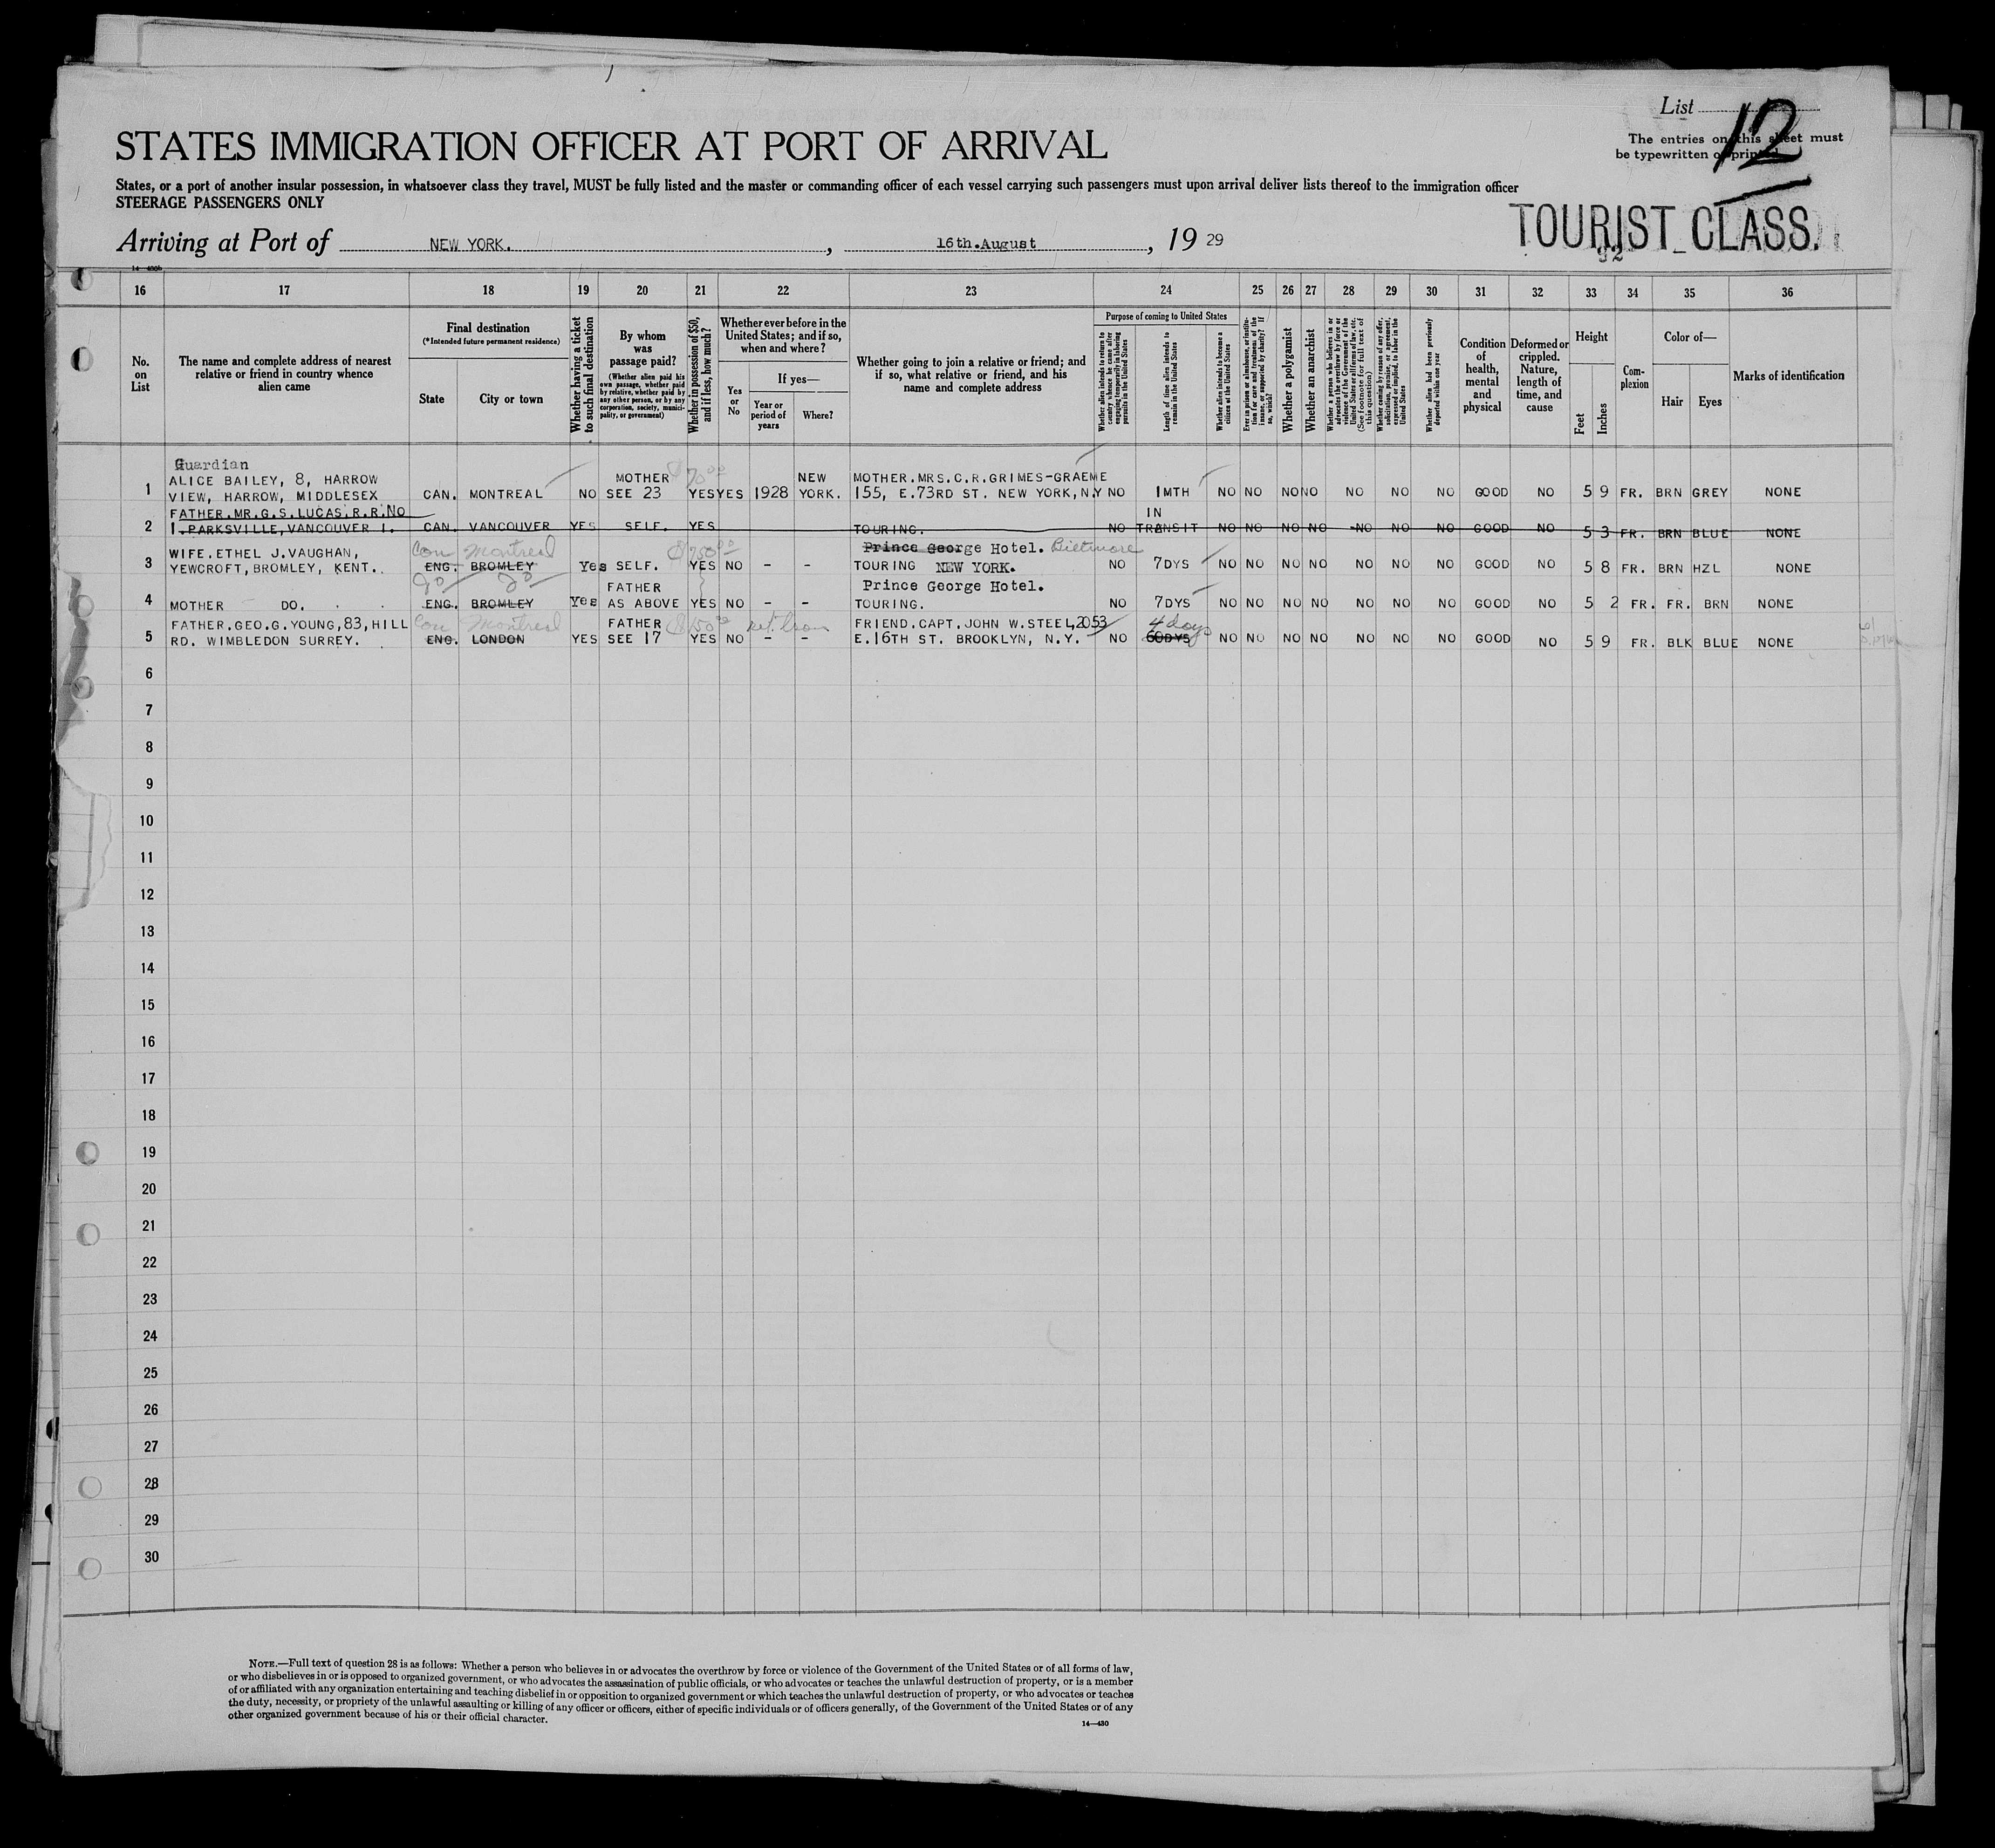 List 12
The entries on this sheet must
be typewritten or printed.
STATES IMMIGRATION OFFICER AT PORT OF ARRIVAL
States, or a port of another insular possession, in whatsoever class they travel, MUST be fully listed and the master or commanding officer of each vessel carrying such passengers must upon arrival deliver lists thereof to the immigration officer
STEERAGE PASSENGERS ONLY
TOURIST CLASS.
92
Arriving at Port of NEW YORK. , 16th.August , 19 29
16 17 18 19 20 21 22 23 24 25 26 27 28 29 30 31 32 33 34 35 36
No. on List
The name and complete address of nearest relative or friend in country whence alien came
Final destination
(*Intended future permanent residence)
State
City or town
Whether having a ticket to such final destination
By whom was passage paid?
(Whether alien paid his own passage, whether paid by relative, whether paid by any other person, or by any corporation, society, municipality, or government)
Whether in possession of $50, and if less, how much?
Whether ever before in the United States; and if so, when and where?
Yes or No
If yes—
Year or period of years
Where?
Whether going to join a relative or friend; and if so, what relative or friend, and his name and complete address
Purpose of coming to United States
Whether alien intends to return to country whence he came after engaging temporarily in laboring pursuits in the United States
Length of time alien intends to remain in the United States
Whether alien intends to become a citizen of the United States
Ever in prison or almshouse, or institution for care and treatment of the insane, or supported by charity? If so, which?
Whether a polygamist
Whether an anarchist
Whether a person who believes in or advocates the overthrow by force or violence of the Government of the United States or all forms of law, etc. (See footnote for full text of this question)
Whether coming by reason of any offer, solicitation, promise, or agreement, expressed or implied, to labor in the United States
Whether alien had been previously deported within one year
Condition of health, mental and physical
Deformed or crippled. Nature, length of time, and cause
Height
Feet
Inches
Complexion
Color of—
Hair
Eyes
Marks of identification
Guardian
ALICE BAILEY, 8, HARROW MOTHER $70 00 NEW MOTHER.MRS.C.R.GRIMES-GRAEME
1 VIEW, HARROW, MIDDLESEX CAN. MONTREAL NO SEE 23 YES YES 1928 YORK. 155, E.73RD ST. NEW YORK,N.Y NO 1MTH NO NO NO NO NO NO NO GOOD NO 5 9 FR. BRN GREY NONE
FATHER.MR.G.S.LUCAS.R.R.NO IN
2 1.PARKSVILLE,VANCOUVER I. CAN. VANCOUVER YES SELF. YES TOURING. NO TRANSIT NO NO NO NO NO NO NO GOOD NO 5 3 FR. BRN BLUE NONE
WIFE.ETHEL J.VAUGHAN, Can Montreal $750 00 Prince George Hotel. Biltmore
3 YEWCROFT,BROMLEY, KENT. ENG. BROMLEY Yes SELF. YES NO - - TOURING NEW YORK. NO 7DYS NO NO NO NO NO NO NO GOOD NO 5 8 FR. BRN HZL NONE
Do Do FATHER Prince George Hotel.
4 MOTHER DO. ENG. BROMLEY Yes AS ABOVE YES NO - - TOURING. NO 7DYS NO NO NO NO NO NO NO GOOD NO 5 2 FR. FR. BRN NONE
FATHER.GEO.G.YOUNG,83,HILL Can Montreal FATHER $150 00 FRIEND.CAPT.JOHN W.STEEL,2053 4 days
5 RD. WIMBLEDON SURREY. ENG. LONDON YES SEE 17 YES NO - - E.16TH ST. BROOKLYN, N.Y. NO 60DYS NO NO NO NO NO NO NO GOOD NO 5 9 FR. BLK BLUE NONE
6
7
8
9
10
11
12
13
14
15
16
17
18
19
20
21
22
23
24
25
26
27
28
29
30
NOTE.—Full text of question 28 is as follows: Whether a person who believes in or advocates the overthrow by force or violence of the Government of the United States or of all forms of law,
or who disbelieves in or is opposed to organized government, or who advocates the assassination of public officials, or who advocates or teaches the unlawful destruction of property, or is a member
of or affiliated with any organization entertaining and teaching disbelief in or opposition to organized government or which teaches the unlawful destruction of property, or who advocates or teaches
the duty, necessity, or propriety of the unlawful assaulting or killing of any officer or officers, either of specific individuals or of officers generally, of the Government of the United States or of any
other organized government because of his or their official character.
14—430